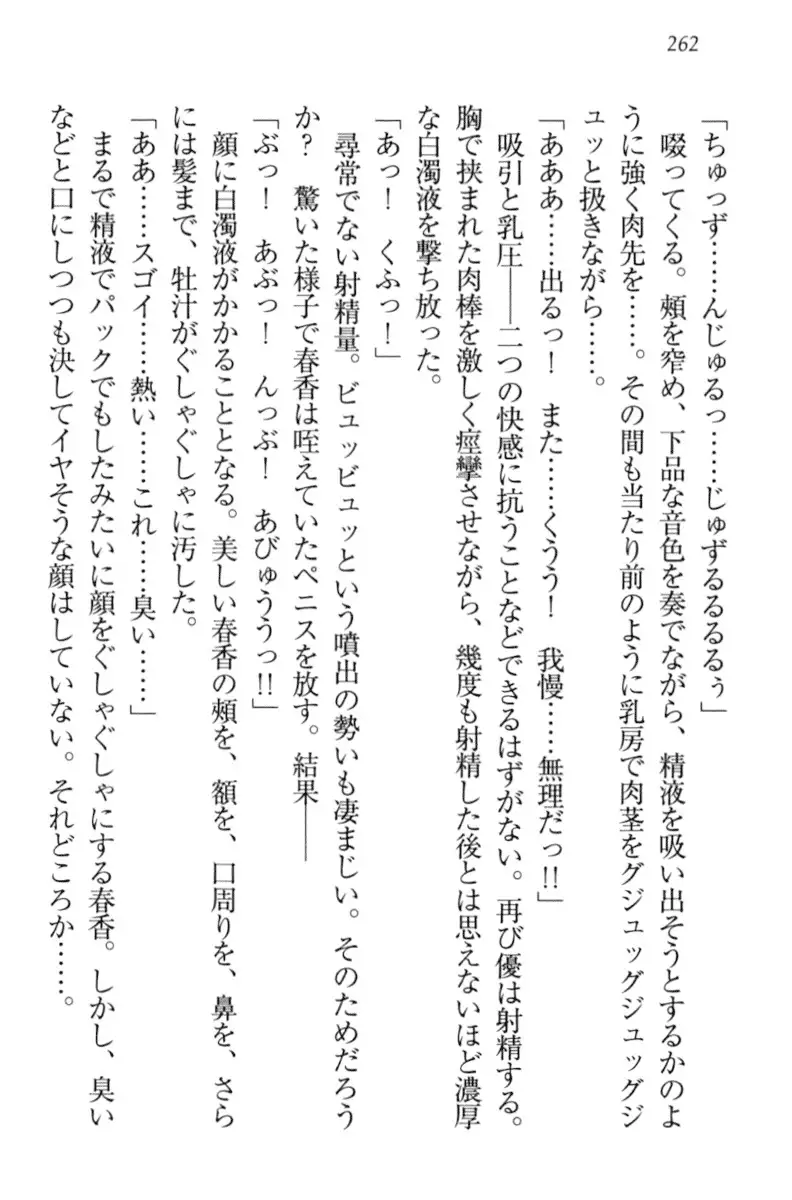 262
「ちゅっず……んじゅるっ……じゅずるるるるぅ」
　啜ってくる。頬を窄め、下品な音色を奏でながら、精液を吸い出そうとするかのよ
うに強く肉先を……。その間も当たり前のように乳房で肉茎をグジュッグジュッグジ
ュッと扱きながら……。
「あああ……出るっ！　また……くうう！　我慢……無理だっ!!」
　吸引と乳圧――二つの快感に抗うことなどできるはずがない。再び優は射精する。
胸で挟まれた肉棒を激しく痙攣させながら、幾度も射精した後とは思えないほど濃厚
な白濁液を撃ち放った。
「あっ！　くふっ！」
　尋常でない射精量。ビュッビュッという噴出の勢いも凄まじい。そのためだろう
か？　驚いた様子で春香は咥えていたペニスを放す。結果――
「ぶっ！　あぶっ！　んっぶ！　あびゅううっ!!」
　顔に白濁液がかかることとなる。美しい春香の頬を、額を、口周りを、鼻を、さら
には髪まで、牡汁がぐしゃぐしゃに汚した。
「ああ……スゴイ……熱い……これ……臭い……」
　まるで精液でパックでもしたみたいに顔をぐしゃぐしゃにする春香。しかし、臭い
などと口にしつつも決してイヤそうな顔はしていない。それどころか……。